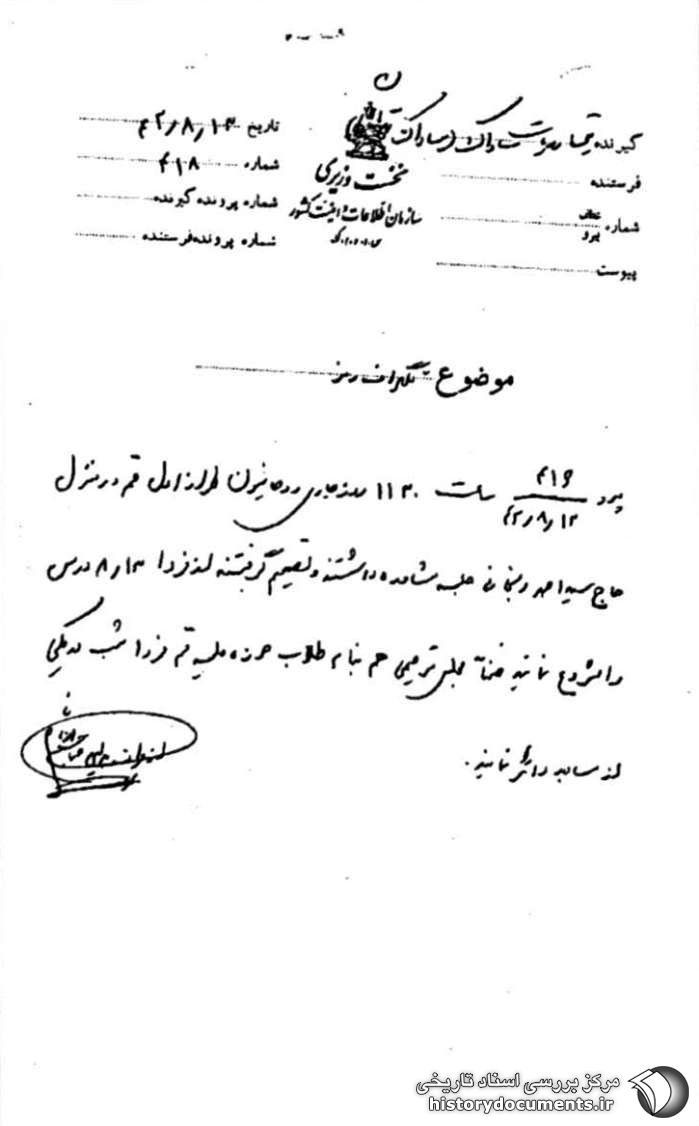 گیرنده تیمسار ریاست ساواک
فرستنده
شماره عطف پیرو
پیوست
نخست وزیری
سازمان اطلاعات و امنیت کشور
س.ا.و.ا.ک
تاریخ ۴۲/۸/۱۳
شماره ۴۱۸
شماره پرونده گیرنده
شماره پرونده فرستنده
موضوع تلگراف رمز
پیرو ۴۱۶ ۴۲/۸/۱۲ ساعت ۱۱۳۰ روز جاری روحانیون طراز اول قم در منزل
حاج سید احمد زنجانی جلسه مشاوره داشتند و تصمیم گرفتند از فردا ۸/۱۳ درس
را شروع نمایند ضمناً مجلس ترحیمی هم بنام طلاب حوزه علمیه قم فردا شب در یکی
از مساجد دائر نمایند.
مرکز بررسی اسناد تاریخی
historydocuments.ir